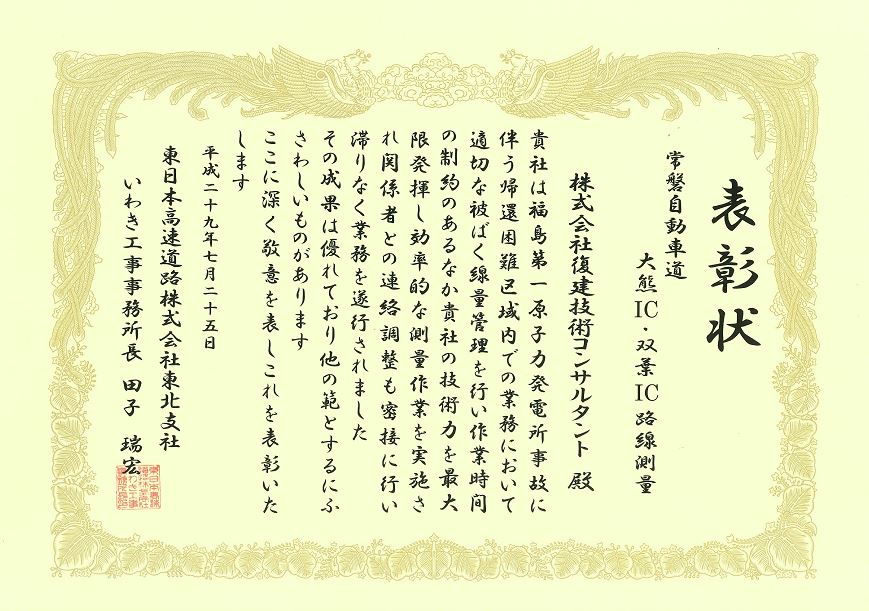 表彰状
常磐自動車道
大熊IC・双葉IC路線測量
株式会社復建技術コンサルタント 殿
貴社は福島第一原子力発電所事故に
伴う帰還困難区域内での業務において
適切な被ばく線量管理を行い作業時間
の制約のあるなか貴社の技術力を最大
限発揮し効率的な測量作業を実施さ
れ関係者との連絡調整も密接に行い
滞りなく業務を遂行されました
その成果は優れており他の範とするにふ
さわしいものがあります
ここに深く敬意を表しこれを表彰いた
します
平成二十九年七月二十五日
東日本高速道路株式会社東北支社
いわき工事事務所長 田子 瑞宏